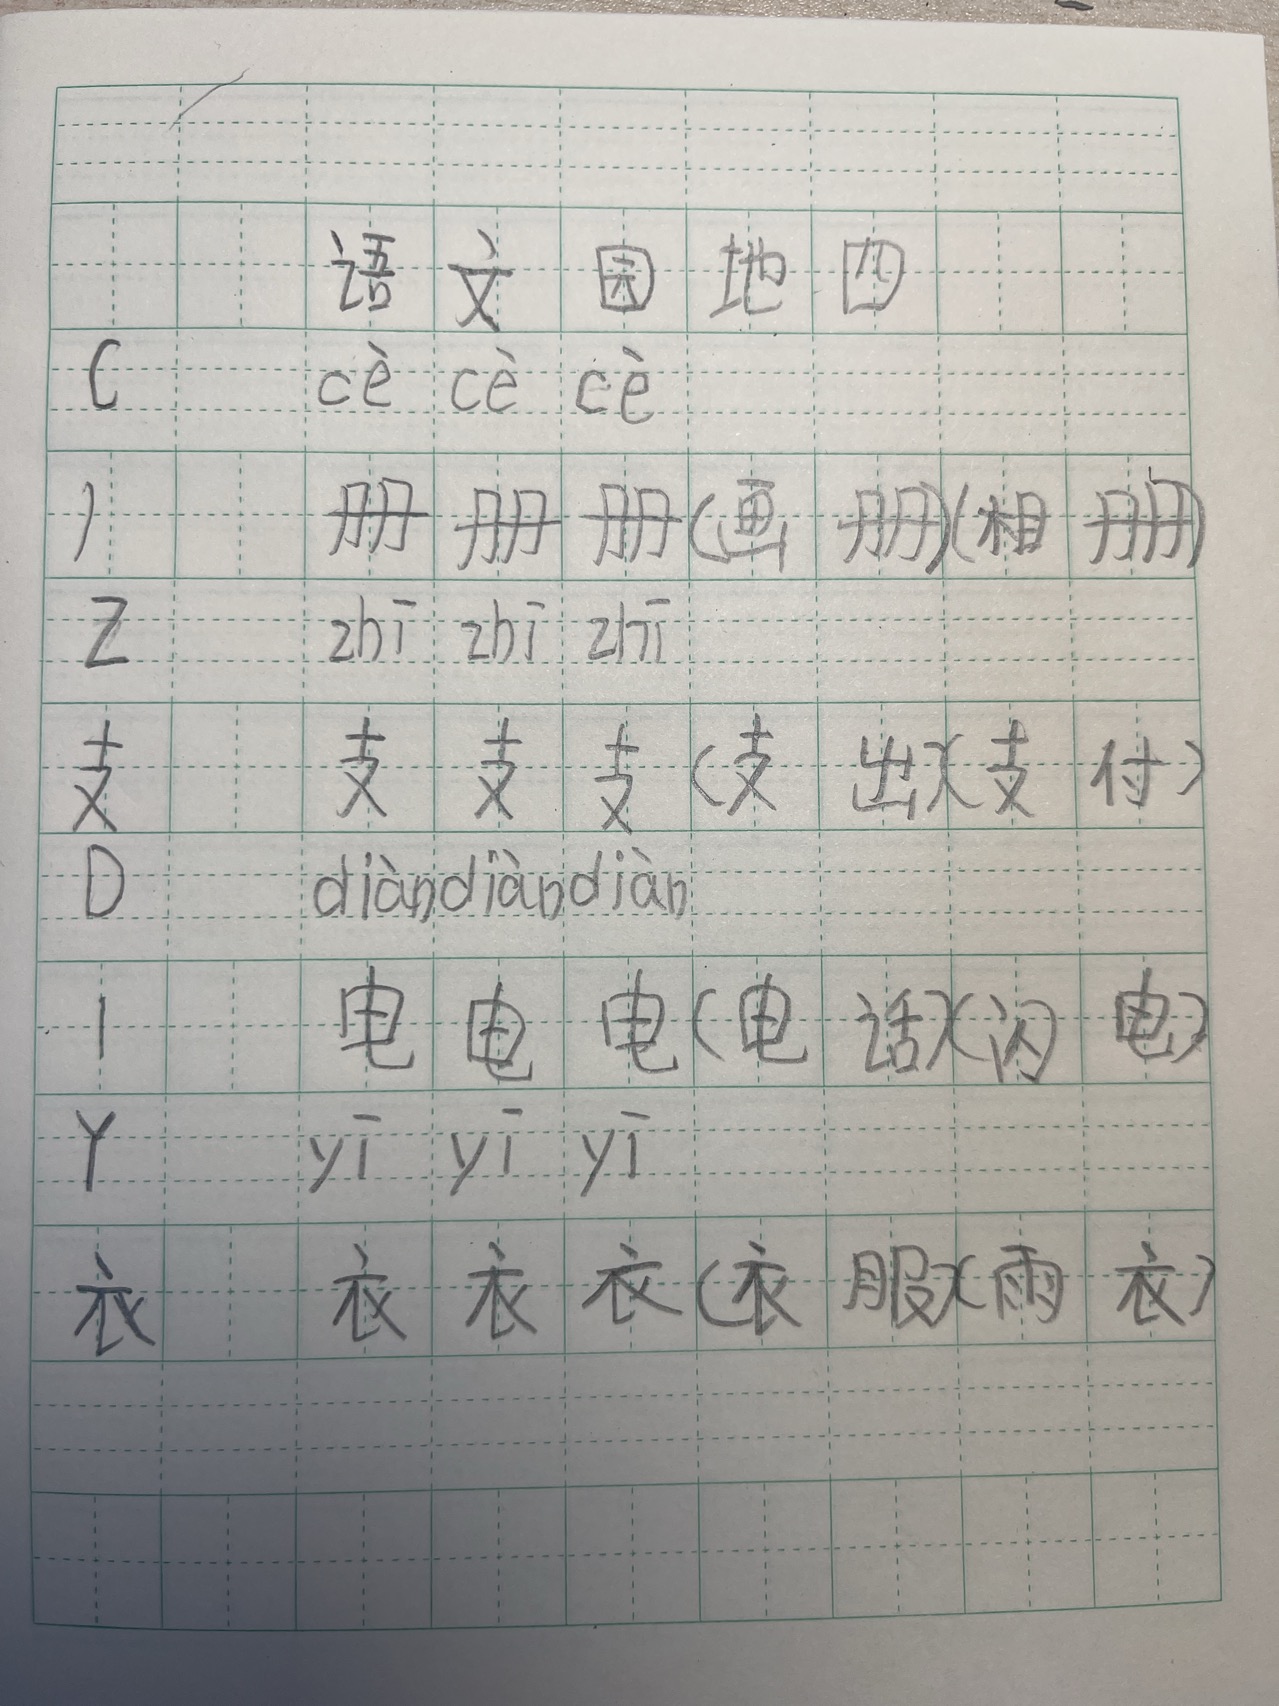 语文园地四
C cè cè cè
丿 册 册 册 (画册)(相册)
Z zhī zhī zhī
支 支 支 支 (支出)(支付)
D diàn diàn diàn
丨 电 电 电 (电话)(闪电)
Y yī yī yī
衣 衣 衣 衣 (衣服)(雨衣)